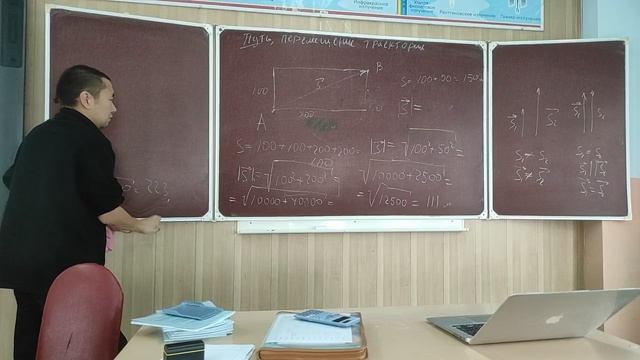 Инфракрасное излучение
Ультрафиолетовое излучение
Рентгеновское излучение
Гамма-излучение
Путь, перемещение траектория
B
S = 100+50 = 150
100
200
A
|S⃗| =
S = 100+100+200+200=
|S⃗| = √100²+50² =
|S⃗| = √100²+200² =
√10000+2500 =
= √10000+40000 =
= √12500 = 111
= 223,
S⃗₁
S⃗₂
S₁ = S₂
S⃗₁ ≠ S⃗₂
S⃗₁
S₂
S⃗₁ = S⃗₂